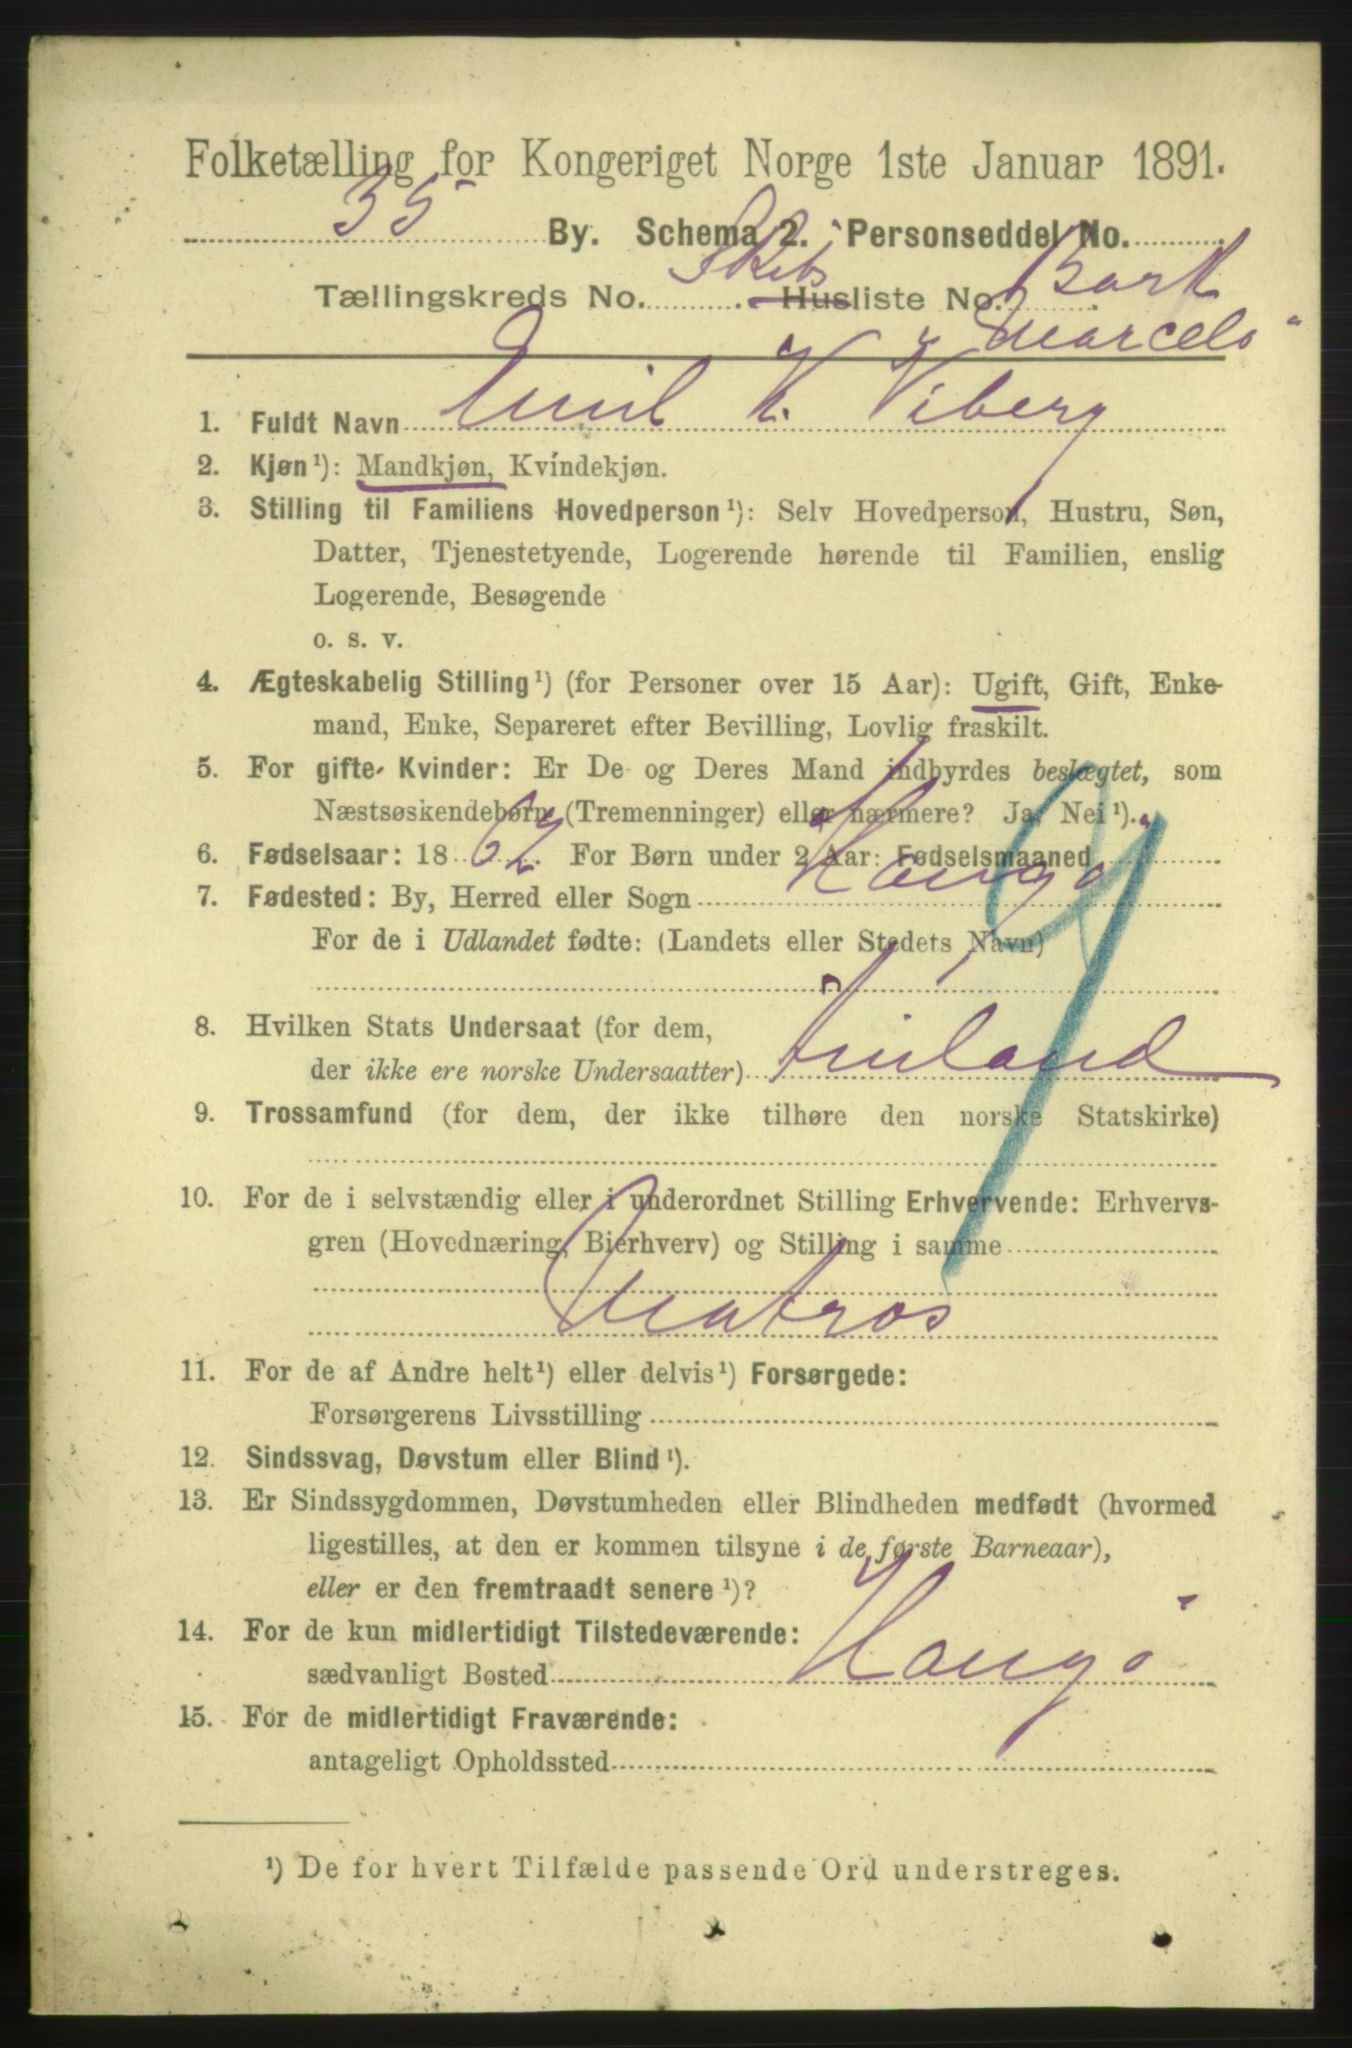 Folketælling for Kongeriget Norge 1ste Januar 1891.
35 By. Schema 2. Personseddel No.
Tællingskreds No. Skibs Husliste No. Bark
"Marcelo"
1. Fuldt Navn Emil K. Viberg
2. Kjøn¹): Mandkjøn, Kvindekjøn.
3. Stilling til Familiens Hovedperson¹): Selv Hovedperson, Hustru, Søn,
Datter, Tjenestetyende, Logerende hørende til Familien, enslig
Logerende, Besøgende
o. s. v.
4. Ægteskabelig Stilling¹) (for Personer over 15 Aar): Ugift, Gift, Enke-
mand, Enke, Separeret efter Bevilling, Lovlig fraskilt.
5. For gifte Kvinder: Er De og Deres Mand indbyrdes beslægtet, som
Næstsøskendebørn (Tremenninger) eller nærmere? Ja, Nei¹).
6. Fødselsaar: 1862. For Børn under 2 Aar: Fødselsmaaned
7. Fødested: By, Herred eller Sogn Hangö
For de i Udlandet fødte: (Landets eller Stedets Navn)
8. Hvilken Stats Undersaat (for dem,
der ikke ere norske Undersaatter) Finland
9. Trossamfund (for dem, der ikke tilhøre den norske Statskirke)
10. For de i selvstændig eller i underordnet Stilling Erhvervende: Erhvervs-
gren (Hovednæring, Bierhverv) og Stilling i samme
Matros
11. For de af Andre helt¹) eller delvis¹) Forsørgede:
Forsørgerens Livsstilling
12. Sindssvag, Døvstum eller Blind¹).
13. Er Sindssygdommen, Døvstumheden eller Blindheden medfødt (hvormed
ligestilles, at den er kommen tilsyne i de første Barneaar),
eller er den fremtraadt senere¹)?
14. For de kun midlertidigt Tilstedeværende:
sædvanligt Bosted Hangö
15. For de midlertidigt Fraværende:
antageligt Opholdssted
¹) De for hvert Tilfælde passende Ord understreges.